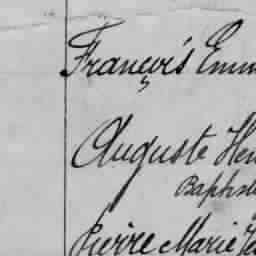 François Emm
Auguste Hen
Baptiste
Pierre Marie Je